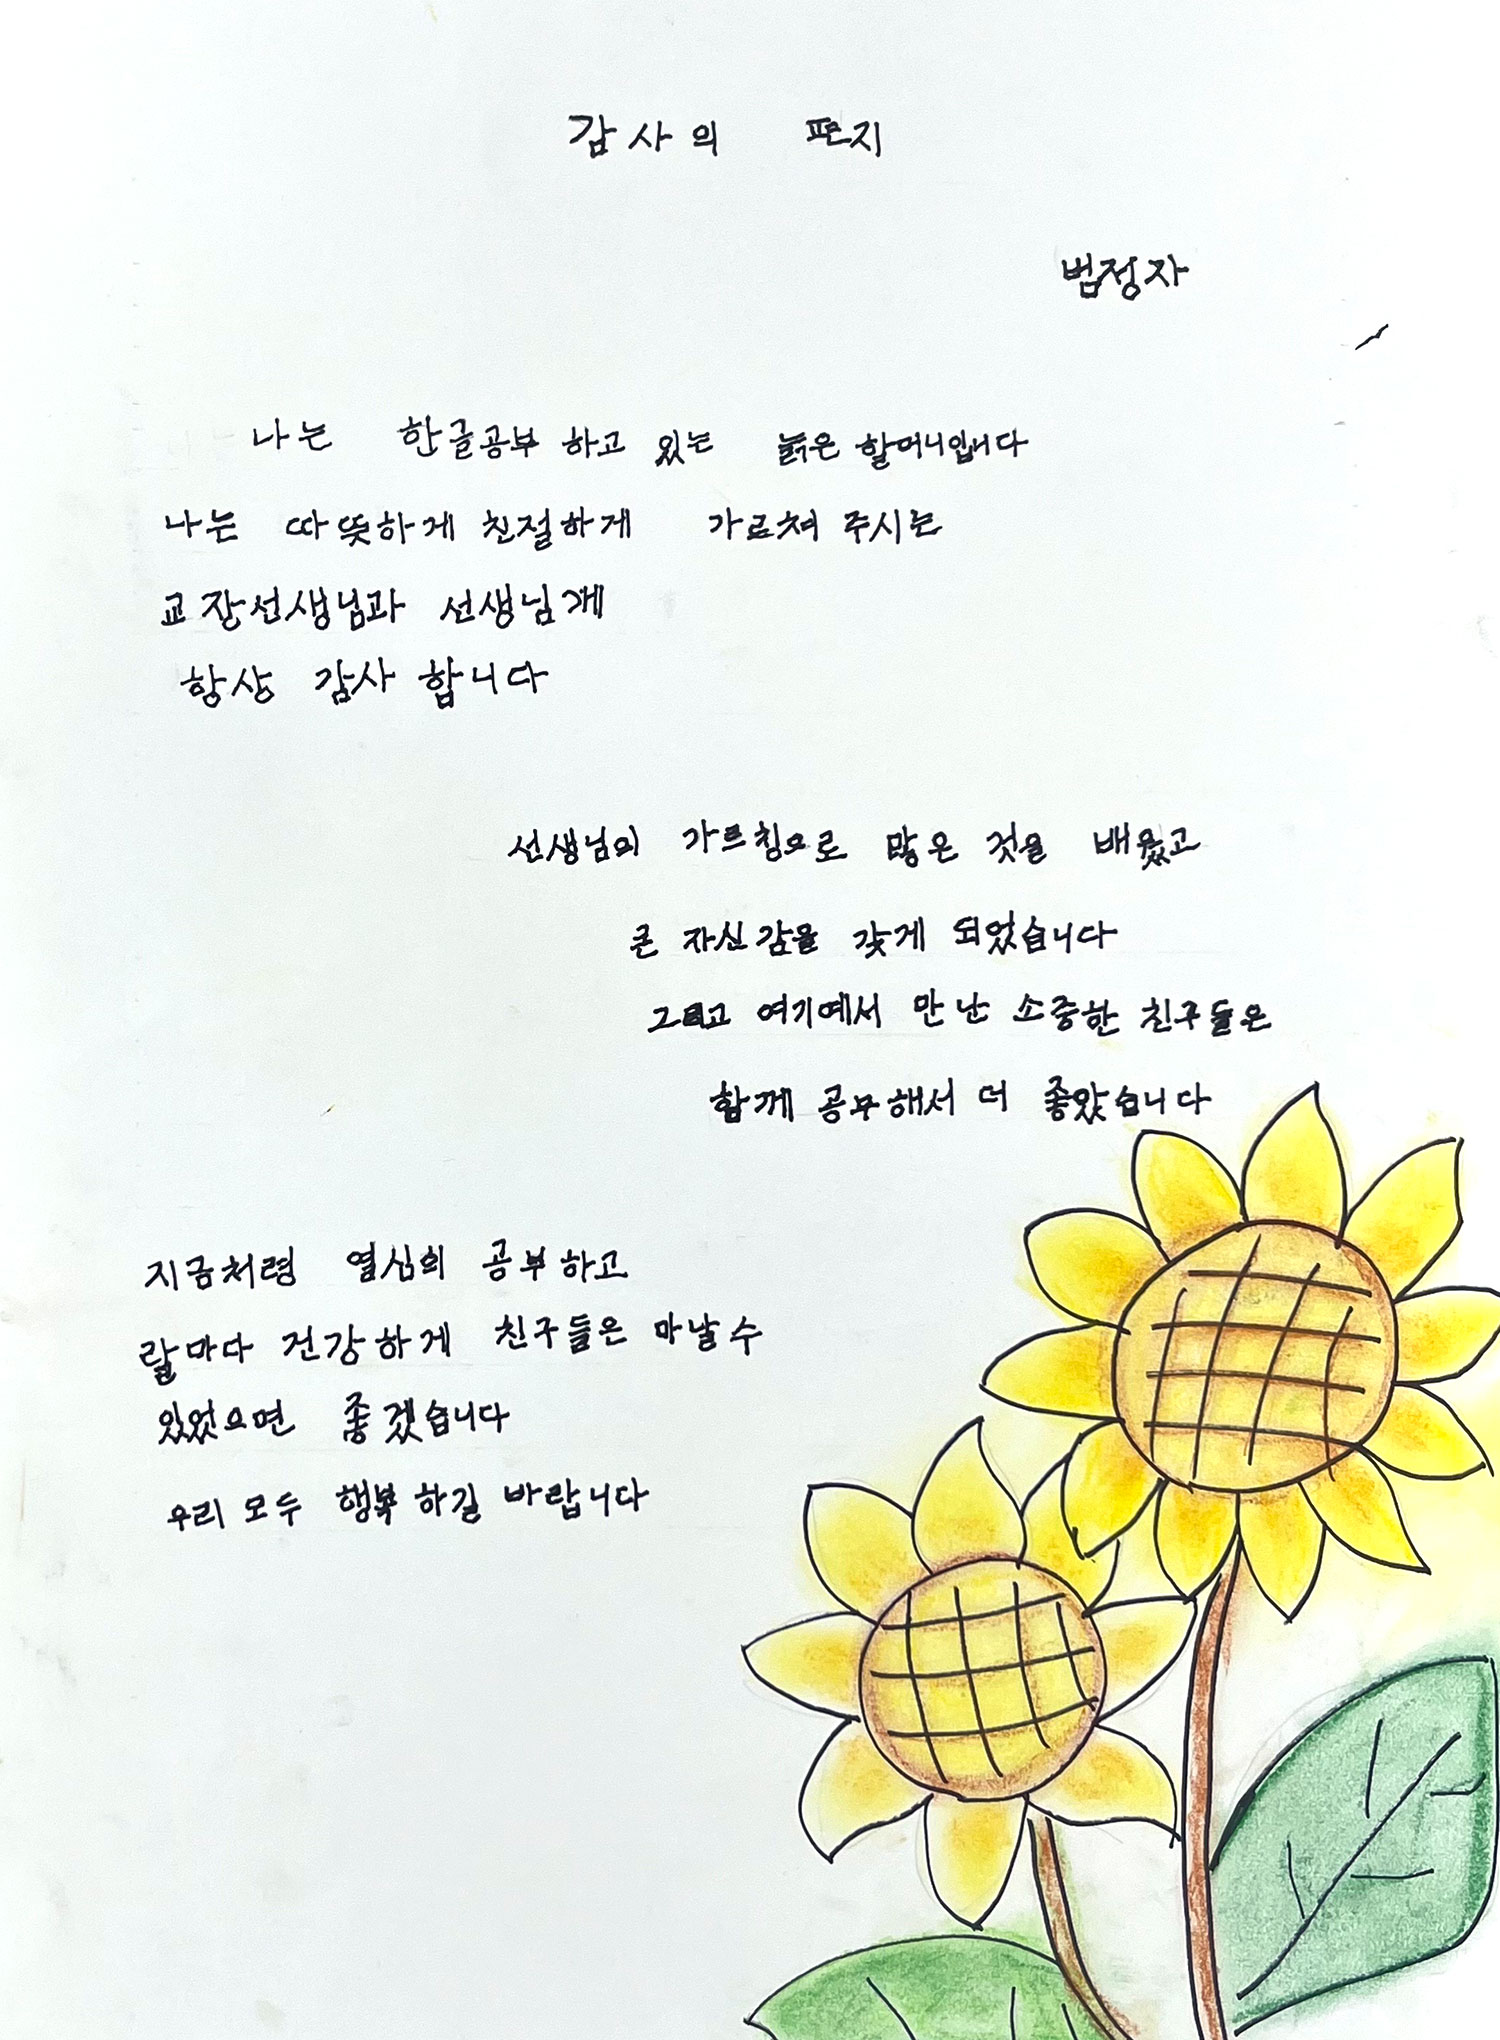 감사의 편지
범정자
나는 한글공부 하고 있는 늙은 할머니입니다
나는 따뜻하게 친절하게 가르쳐 주시는
교장선생님과 선생님께
항상 감사 합니다
선생님의 가르침으로 많은 것을 배웠고
큰 자신감을 갖게 되었습니다
그리고 여기에서 만난 소중한 친구들은
함께 공부해서 더 좋았습니다
지금처령 열심희 공부하고
랄마다 건강하게 친구들은 마날수
있었으면 좋겠습니다
우리 모두 행복 하길 바랍니다